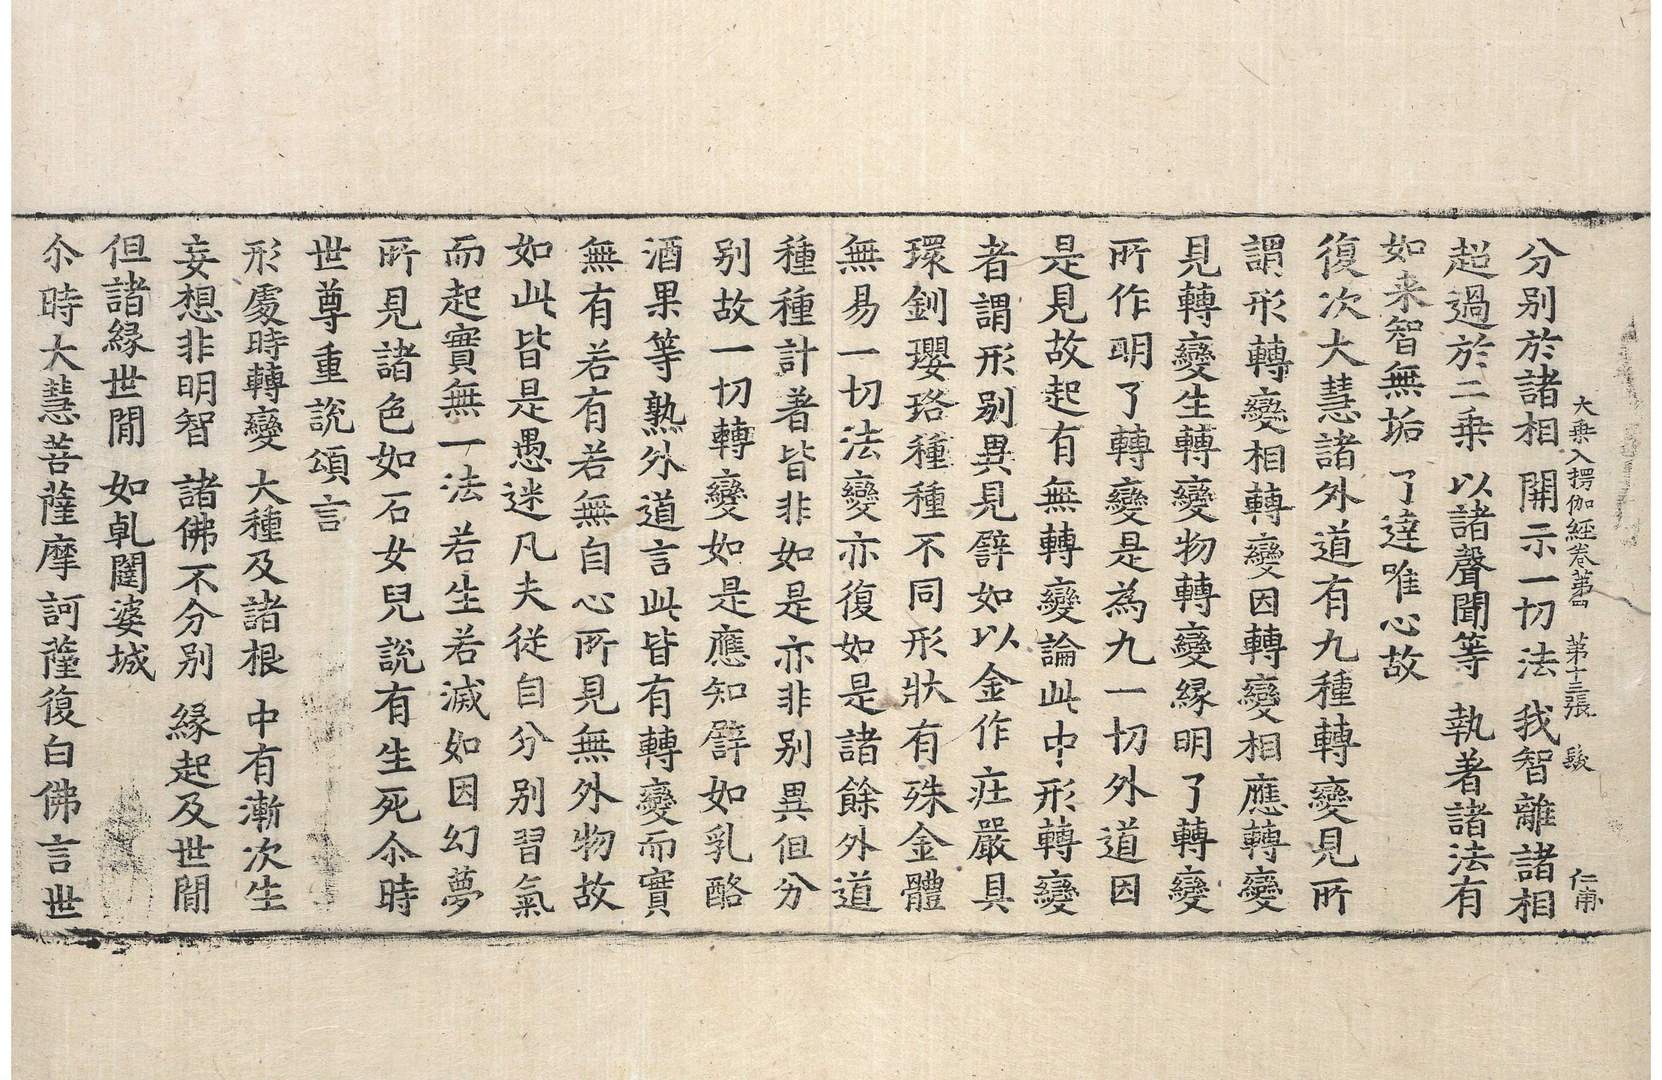 大乗入楞伽經卷第四 第十三張 髮 仁甫
分别於諸相 開示一切法 我智離諸相
超過於二乗 以諸聲聞等 執著諸法有
如来智無垢 了達唯心故
復次大慧諸外道有九種轉變見所
謂形轉變相轉變因轉變相應轉變
見轉變生轉變物轉變縁明了轉變
所作明了轉變是為九一切外道因
是見故起有無轉變論此中形轉變
者謂形别異見譬如以金作莊嚴具
環釧瓔珞種種不同形狀有殊金體
無易一切法變亦復如是諸餘外道
種種計著皆非如是亦非别異但分
别故一切轉變如是應知譬如乳酪
酒果等熟外道言此皆有轉變而實
無有若有若無自心所見無外物故
如此皆是愚迷凡夫從自分别習氣
而起實無一法若生若滅如因幻夢
所見諸色如石女兒說有生死尒時
世尊重說頌言
形處時轉變 大種及諸根 中有漸次生
妄想非明智 諸佛不分别 縁起及世間
但諸縁世間 如乹闥婆城
尒時大慧菩薩摩訶薩復白佛言世